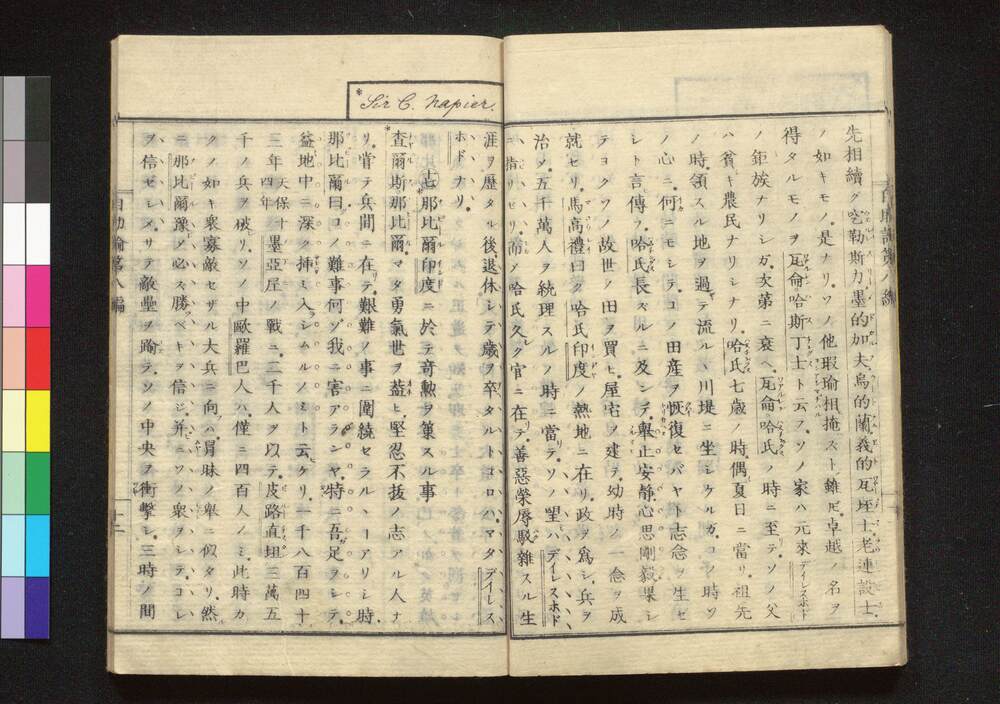 先相續グ克勒斯力墨的加夫烏的蘭義的瓦座士老連設士
ノ如キモノ是ナリソノ他瑕瑜相掩ズト雖𪜈卓越ノ名ヲ
得タルモノヲ瓦侖哈斯丁士ト云フソノ家ハ元來デイレスホド
ノ鉅族ナリシガ次第ニ衰ヘ瓦侖哈氏ノ時ニ至テソノ父
ハ貧キ農民ナリシナリ哈氏七歲ノ時偶夏日ニ當リ祖先
ノ時領スル地ヲ過テ流ルヽ川堤ニ坐シケルガコノ時ソ
ノ心ニ何ニモシテコノ田産ヲ恢復セバヤト志念ヲ生セ
シト言傳フ哈氏長ズルニ及ンデ舉止安静心思剛毅果シ
テヨクソノ故世ノ田ヲ買ヒ屋宅ヲ建テ幼時ノ一念ヲ成
就セリ馬高禮曰ク哈氏印度ノ熱地ニ在リ政ヲ爲シ兵ヲ
治ツ五千萬人ヲ統理スルノ時ニ當テソノ望ハデイレスホド
ニ指セリ而シテ哈氏久ク官ニ在テ善惡榮辱駁雜スル生
Sir C. Napier.
涯ヲ歷タル後退休シテ歳ヲ卒タルトコロハマタデイレス
ホドナリ
十七 那比爾印度ニ於テ奇勲ヲ策スル事
査爾斯那比爾マタ勇氣世ヲ蓋ヒ堅忍不拔ノ志アル人ナ
リ嘗テ兵間ニ在テ艱難ノ事ニ圍繞セラルヽコアリシ時
那比爾曰コノ難事何ゾ我ニ害アランヤ特ニ吾足ヲシテ
益地中ニ深ク挿ミ入シムルノミト云ケリ一千八百四十
三年天保十四年墨亞尼ノ戰ニ二千人ヲ以テ皮路直坦三萬五
千ノ兵ヲ破リソノ中歐羅巴人ハ僅ニ四百人ノミ此時カ
クノ如キ衆寡敵セザル大兵ニ向フハ冒昧ノ舉ニ似タリ然
ニ那比爾豫メ必ズ勝ベキヲ信ジ并ニソノ衆ヲシテコレ
ヲ信ゼシメサテ敵壘ヲ踰テソノ中央ヲ衝擊シ三時ノ間
自助論第八編